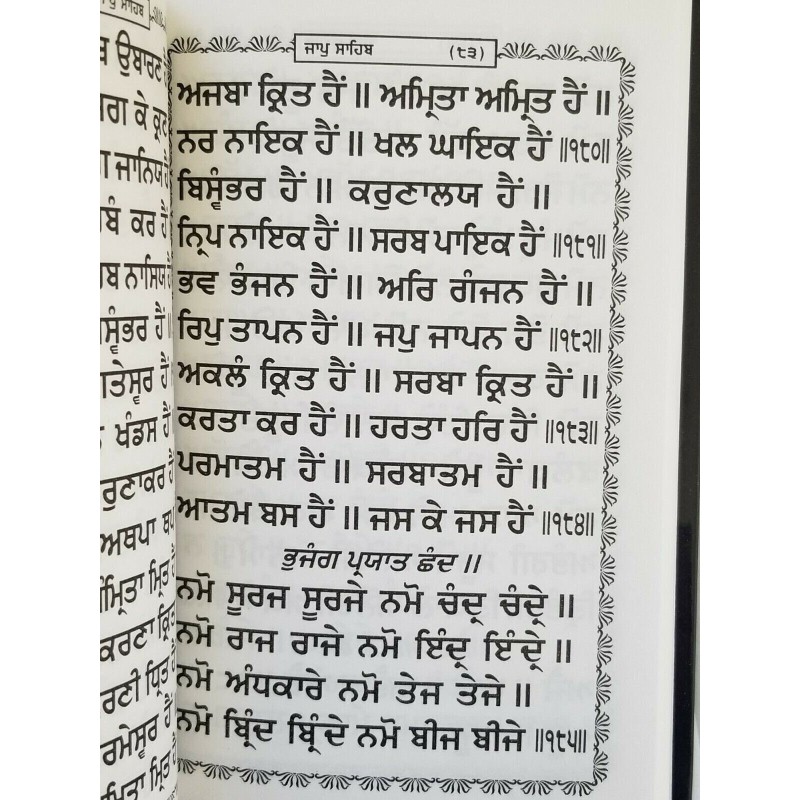 ਸਾਹਿਬ
ਉਬਾਰਣ
ਕੇ
ਜਾਨਿਯ
ਕਰ ਹੈਂ
ਨਾਸਿਯ
ਹੈਂ
ਹੈਂ
ਖੰਡਸ ਹੈਂ
ਅਥਪਾ
ਮ੍ਰਿਤ
ਕਰਣਾ ਕ੍ਰਿਤ
ਧ੍ਰਿਤ
ਹੈਂ
ਮ੍ਰਿਤ
ਜਾਪੁ ਸਾਹਿਬ (੮੩)
ਅਜਬਾ ਕ੍ਰਿਤ ਹੈਂ ॥ ਅਮ੍ਰਿਤਾ ਅਮ੍ਰਿਤ ਹੈਂ ॥
ਨਰ ਨਾਇਕ ਹੈਂ ॥ ਖਲ ਘਾਇਕ ਹੈਂ ॥੧੮੦॥
ਬਿਸ੍ਵੰਭਰ ਹੈਂ ॥ ਕਰੁਣਾਲਯ ਹੈਂ ॥
ਨ੍ਰਿਪ ਨਾਇਕ ਹੈਂ ॥ ਸਰਬ ਪਾਇਕ ਹੈਂ ॥੧੮੧॥
ਭਵ ਭੰਜਨ ਹੈਂ ॥ ਅਰਿ ਗੰਜਨ ਹੈਂ ॥
ਰਿਪੁ ਤਾਪਨ ਹੈਂ ॥ ਜਪੁ ਜਾਪਨ ਹੈਂ ॥੧੮੨॥
ਅਕਲੰ ਕ੍ਰਿਤ ਹੈਂ ॥ ਸਰਬਾ ਕ੍ਰਿਤ ਹੈਂ ॥
ਕਰਤਾ ਕਰ ਹੈਂ ॥ ਹਰਤਾ ਹਰਿ ਹੈਂ ॥੧੮੩॥
ਪਰਮਾਤਮ ਹੈਂ ॥ ਸਰਬਾਤਮ ਹੈਂ ॥
ਆਤਮ ਬਸ ਹੈਂ ॥ ਜਸ ਕੇ ਜਸ ਹੈਂ ॥੧੮੪॥
ਭੁਜੰਗ ਪ੍ਰਯਾਤ ਛੰਦ ॥
ਨਮੋ ਸੂਰਜ ਸੂਰਜੇ ਨਮੋ ਚੰਦ੍ਰ ਚੰਦ੍ਰੇ ॥
ਨਮੋ ਰਾਜ ਰਾਜੇ ਨਮੋ ਇੰਦ੍ਰ ਇੰਦ੍ਰੇ ॥
ਨਮੋ ਅੰਧਕਾਰੇ ਨਮੋ ਤੇਜ ਤੇਜੇ ॥
ਨਮੋ ਬ੍ਰਿੰਦ ਬ੍ਰਿੰਦੇ ਨਮੋ ਬੀਜ ਬੀਜੇ ॥੧੮੫॥